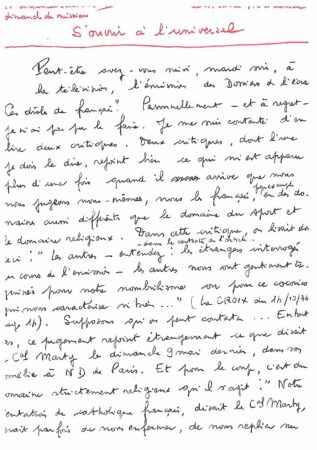 dimanche des missions
S'ouvrir à l'universel
Peut-être avez-vous suivi, mardi soir, à
la télévision, l'émission des Dossiers de l'écran
Ces drôles de français". Personnellement - et à regret -
je n'ai pas pu le faire. Je me suis contenté d'en
lire deux critiques. Deux critiques, dont l'une
je dois le dire, rejoint bien ce qui m'est apparu
plus d'une fois quand il arrive que nous
nous jugeons nous-mêmes, nous les français, par exemple en des do-
maines aussi différents que le domaine du sport et
le domaine religieux. Dans cette critique, on lisait
ceci : "Les autres - entendez : les étrangers interrogés
dans le contexte de l'émission
au cours de l'émission - les autres nous ont gentiment
pour notre nombrilisme ou pour ce cocorico
qui nous caractérise si bien..." (La CROIX du 14/10/76
Supposons qu'on peut contester... En tout
ce jugement rejoint étrangement ce que disait
Cal Marty le dimanche 9 mai dernier, dans son
homélie à ND de Paris. Et pour le coup, c'est du
domaine strictement religieux qu'il s'agit : "Notre
de catholique français, disait le Cal Marty,
parfois de nous enfermer, de nous replier sur